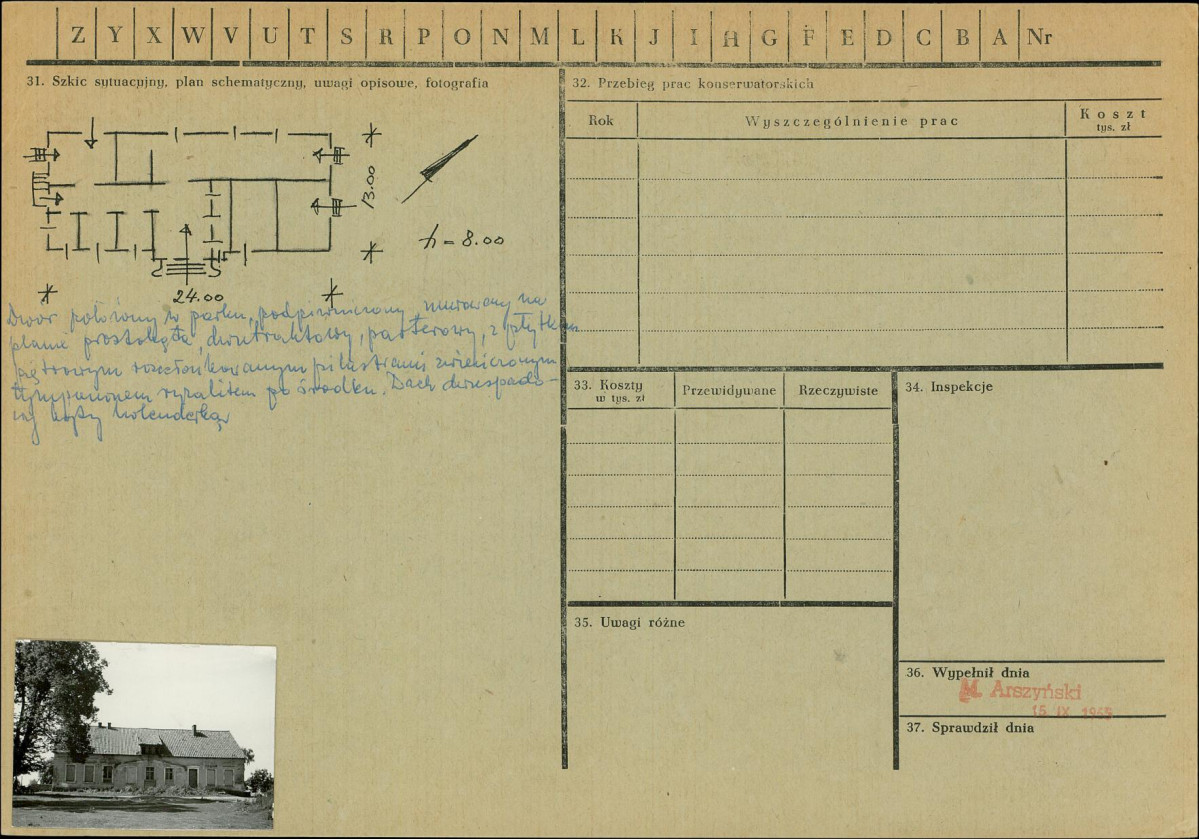 Z Y X W V U T S R P O N M L K J I H G F E D C B A Nr
31. Szkic sytuacyjny, plan schematyczny, uwagi opisowe, fotografia
13.00
h = 8.00
24.00
Dwór położony w parku, podpiwniczony, murowany na
planie prostokąta, dwutraktowy, parterowy, z płytkim
piętrowym rozczłonkowanym pilastrami zwieńczonym
tympanonem ryzalitem po środku. Dach dwuspado-
wy kryty holenderką
32. Przebieg prac konserwatorskich
Rok
Wyszczególnienie prac
Koszt
tys. zł
33. Koszty
w tys. zł
Przewidywane
Rzeczywiste
34. Inspekcje
35. Uwagi różne
36. Wypełnił dnia
M. Arszyński
15 IX 1965
37. Sprawdził dnia